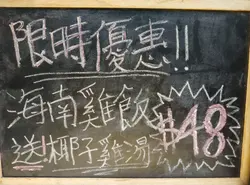 限時優惠!!
海南雞飯
送椰子雞湯
$48